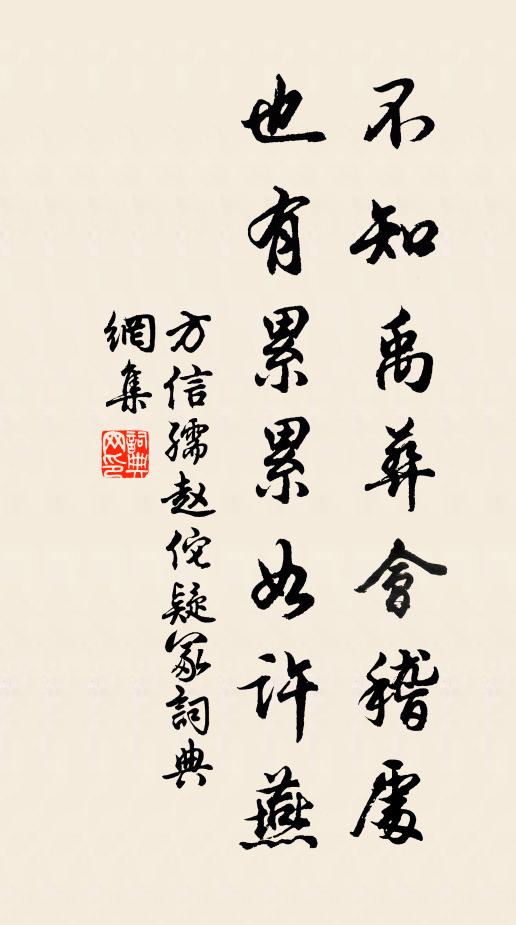 不知禹葬會稽處
也有累累如許燕
方信孺赵佗疑冢詞典
網集
詞典
网印